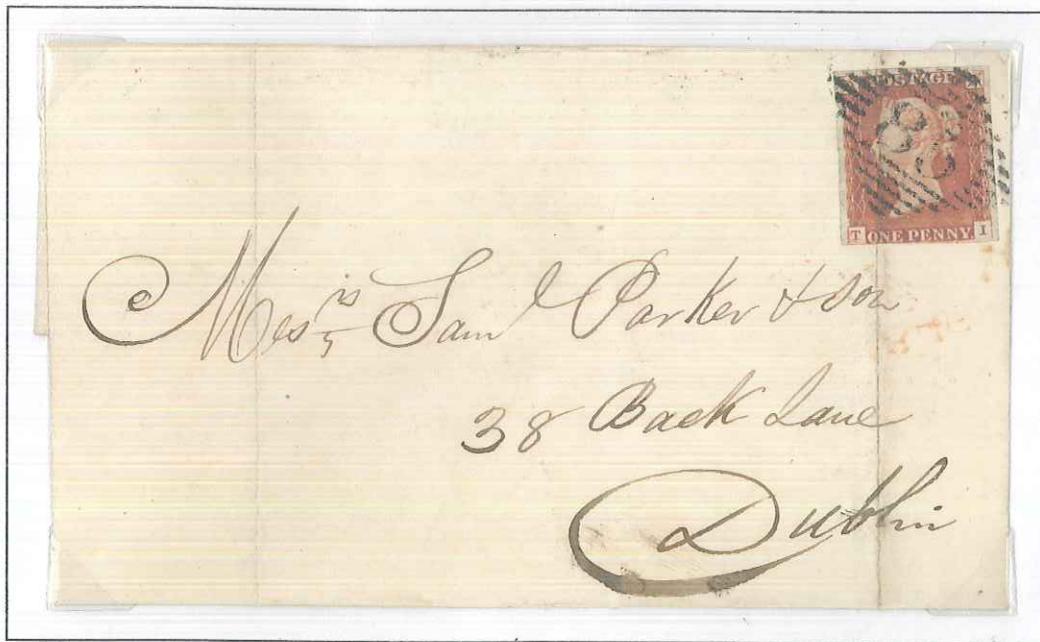 POSTAGE
83
T ONE PENNY I
Messrs Saml Parker & Son
38 Back Lane
Dublin